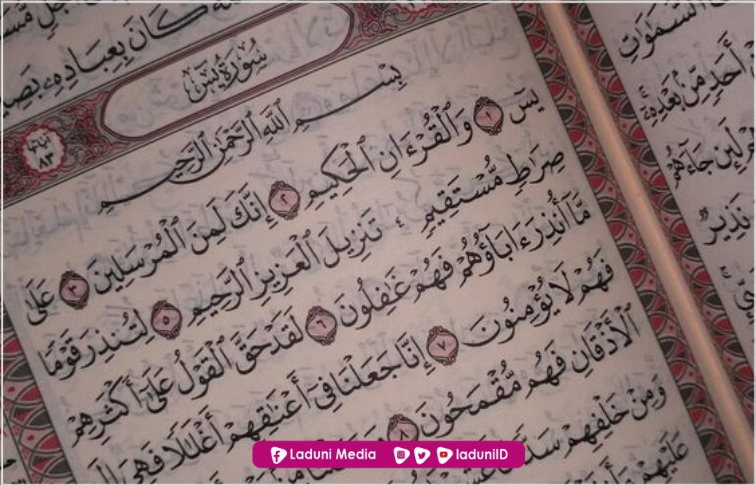 كَانَ بِعِبَادِهِۦ بَصِي
سُورَةُ يسٓ
ءاياتها ٨٣
بِسْمِ ٱللَّهِ ٱلرَّحْمَٰنِ ٱلرَّحِيمِ
يسٓ ١ وَٱلْقُرْءَانِ ٱلْحَكِيمِ ٢ إِنَّكَ لَمِنَ ٱلْمُرْسَلِينَ ٣ عَلَىٰ
صِرَٰطٍ مُّسْتَقِيمٍ ٤ تَنزِيلَ ٱلْعَزِيزِ ٱلرَّحِيمِ ٥ لِتُنذِرَ قَوْمًا
مَّآ أُنذِرَ ءَابَآؤُهُمْ فَهُمْ غَٰفِلُونَ ٦ لَقَدْ حَقَّ ٱلْقَوْلُ عَلَىٰٓ أَكْثَرِهِمْ
فَهُمْ لَا يُؤْمِنُونَ ٧ إِنَّا جَعَلْنَا فِىٓ أَعْنَٰقِهِمْ أَغْلَٰلًا فَهِىَ إِلَى
ٱلْأَذْقَانِ فَهُم مُّقْمَحُونَ ٨
وَمِنْ خَلْفِهِمْ
عَلَيْهِمْ
ٱلسَّمَٰوَٰتِ
أَحَدٍ مِّنۢ بَعْدِهِۦٓ
جَآءَهُمْ
نَذِيرٌ
Laduni Media laduniID